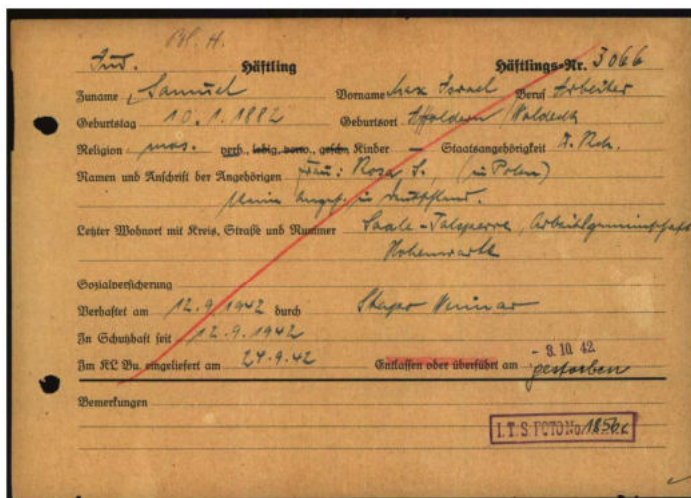 Bl. H.
Jud. Häftling Häftlings-Nr. 3066
Zuname Samuel Vorname Max Israel Beruf Arbeiter
Geburtstag 10.1.1882 Geburtsort Affoldern/Waldeck
Religion mos. verh., ledig, verw., gesch. Kinder — Staatsangehörigkeit D.Rch.
Namen und Anschrift der Angehörigen Frau: Rosa S., (in Polen)
Angeh. in Deutschland.
Letzter Wohnort mit Kreis, Straße und Nummer Saale-Talsperre, Arbeitsgemeinschaft
Hohenwarte
Sozialversicherung
Verhaftet am 12.9.1942 durch Stapo Weimar
In Schutzhaft seit 12.9.1942
Im KL Bu. eingeliefert am 24.9.42 Entlassen oder überführt am - 3. 10. 42
gestorben
Bemerkungen
I.T.S. FOTO No